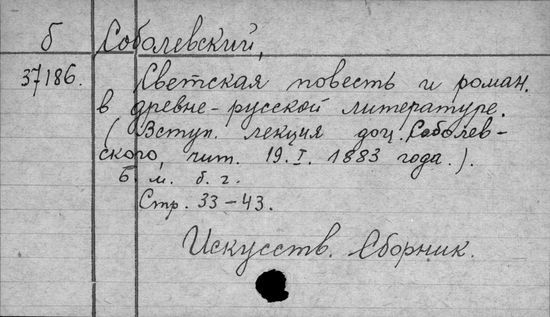 б Соболевский,
37186. Светская повесть и роман.
в древне-русской литературе.
(Вступ. лекция доц. Соболев-
ского, чит. 19.I. 1883 года.).
б. м. б. г.
Стр. 33-43.
Искусств. Сборник.